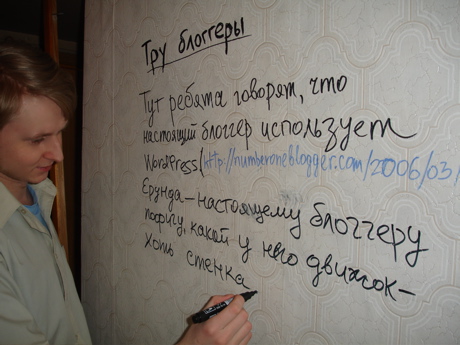 Тру блоггеры
Тут ребята говорят, что
настоящий блоггер использует
WordPress (http://numberoneblogger.com/2006/03/
Ерунда - настоящему блоггеру
пофигу, какой у него движок -
хоть стенка